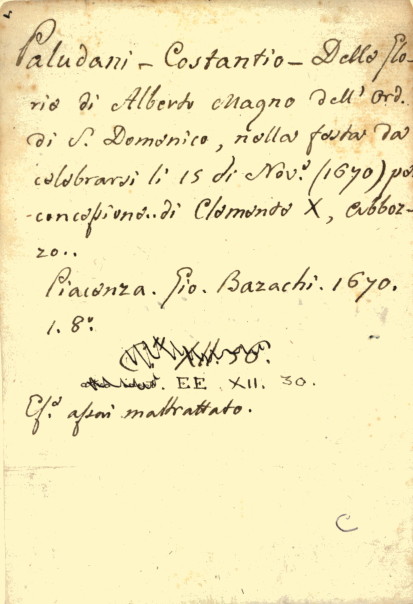 Paludani - Costantio - Delle Glo-
rie di Alberto Magno dell' Ord.
di S. Domenico, nella festa da
celebrarsi li 15 di Nov.e (1670) per
concessione.. di Clemente X, Abboz-
zo..
Piacenza. Gio. Bazachi. 1670.
1. 8°.
XII. 30.
EE XII. 30.
Es.e assai maltrattato.
C